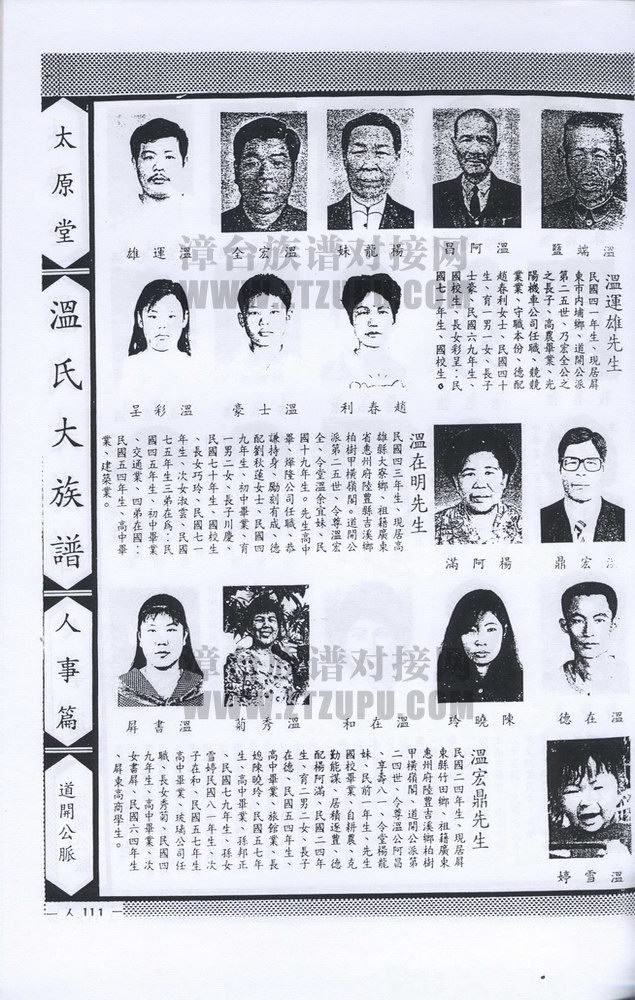 太原堂
溫氏大族譜
人事篇
道開公脈
人 111
雄運溫
全宏溫
妹龍楊
呂阿溫
鹽端溫
溫運雄先生。
民國四一年生、現居屏
東市內埔鄉、道開公派
第二五世、乃宏全公之
之長子、高農畢業、光
陽機車公司任職、競競
業業、守職本份、德配
趙春利女士、民國四十
生、育一男一女、長子
士豪、民國六九年生、
國校生、長女彩呈：民
國七一年生、國校生。
呈彩溫
豪士溫
利春趙
溫在明先生
民國四三年生、現居高
雄縣大寮鄉、祖籍廣東
省惠州府陸豐縣吉溪鄉
柏樹甲橫嶺閣。道開公
派第二五世、令尊溫宏
全、令堂溫余宜妹、民
國十九年生。先生高中
畢、燁隆公司任職、恭
謙持身、勵刻有成、德
配劉秋蓮女士、民國四
九年生、初中畢業、育
一男二女、長子川慶、
民國七十年生、國校生
、長女巧玲、民國七一
年生、次女淑雲、民國
七五年生三弟在為：民
國四五年生、初中畢業
、交通業、四弟在國：
民國五四年生、高中畢
業、建築業。
滿阿楊
鼎宏溫
屏書溫
菊秀溫
和在溫
玲曉陳
德在溫
溫宏鼎先生
民國二四年生、現居屏
東縣竹田鄉、祖籍廣東
惠州府陸豐吉溪鄉柏樹
甲橫嶺閣、道開公派第
二四世、令尊溫公阿呂
、享壽八一、令堂楊龍
妹、民前一年生、先生
國校畢業、自耕農、克
勤能謀、居積逐豐、德
配楊阿滿、民國二四年
生、育二男二女、長子
在德、民國五四年生、
高中畢業、旅館業、長
媳陳曉玲、民國五七年
生、高中畢業、孫邦正
、民國七九年生、孫女
雪婷民國八一年生、次
子在和、民國五七年生
高中畢業、玻璃公司任
職、長女秀菊、民國四
九年生、高中畢業、次
女書屏、民國六四年生
、屏東高商學生。
婷雪溫
漳台族谱对接网
WWW.ZTZUPU.COM
漳台族谱对接网
WWW.ZTZUPU.COM